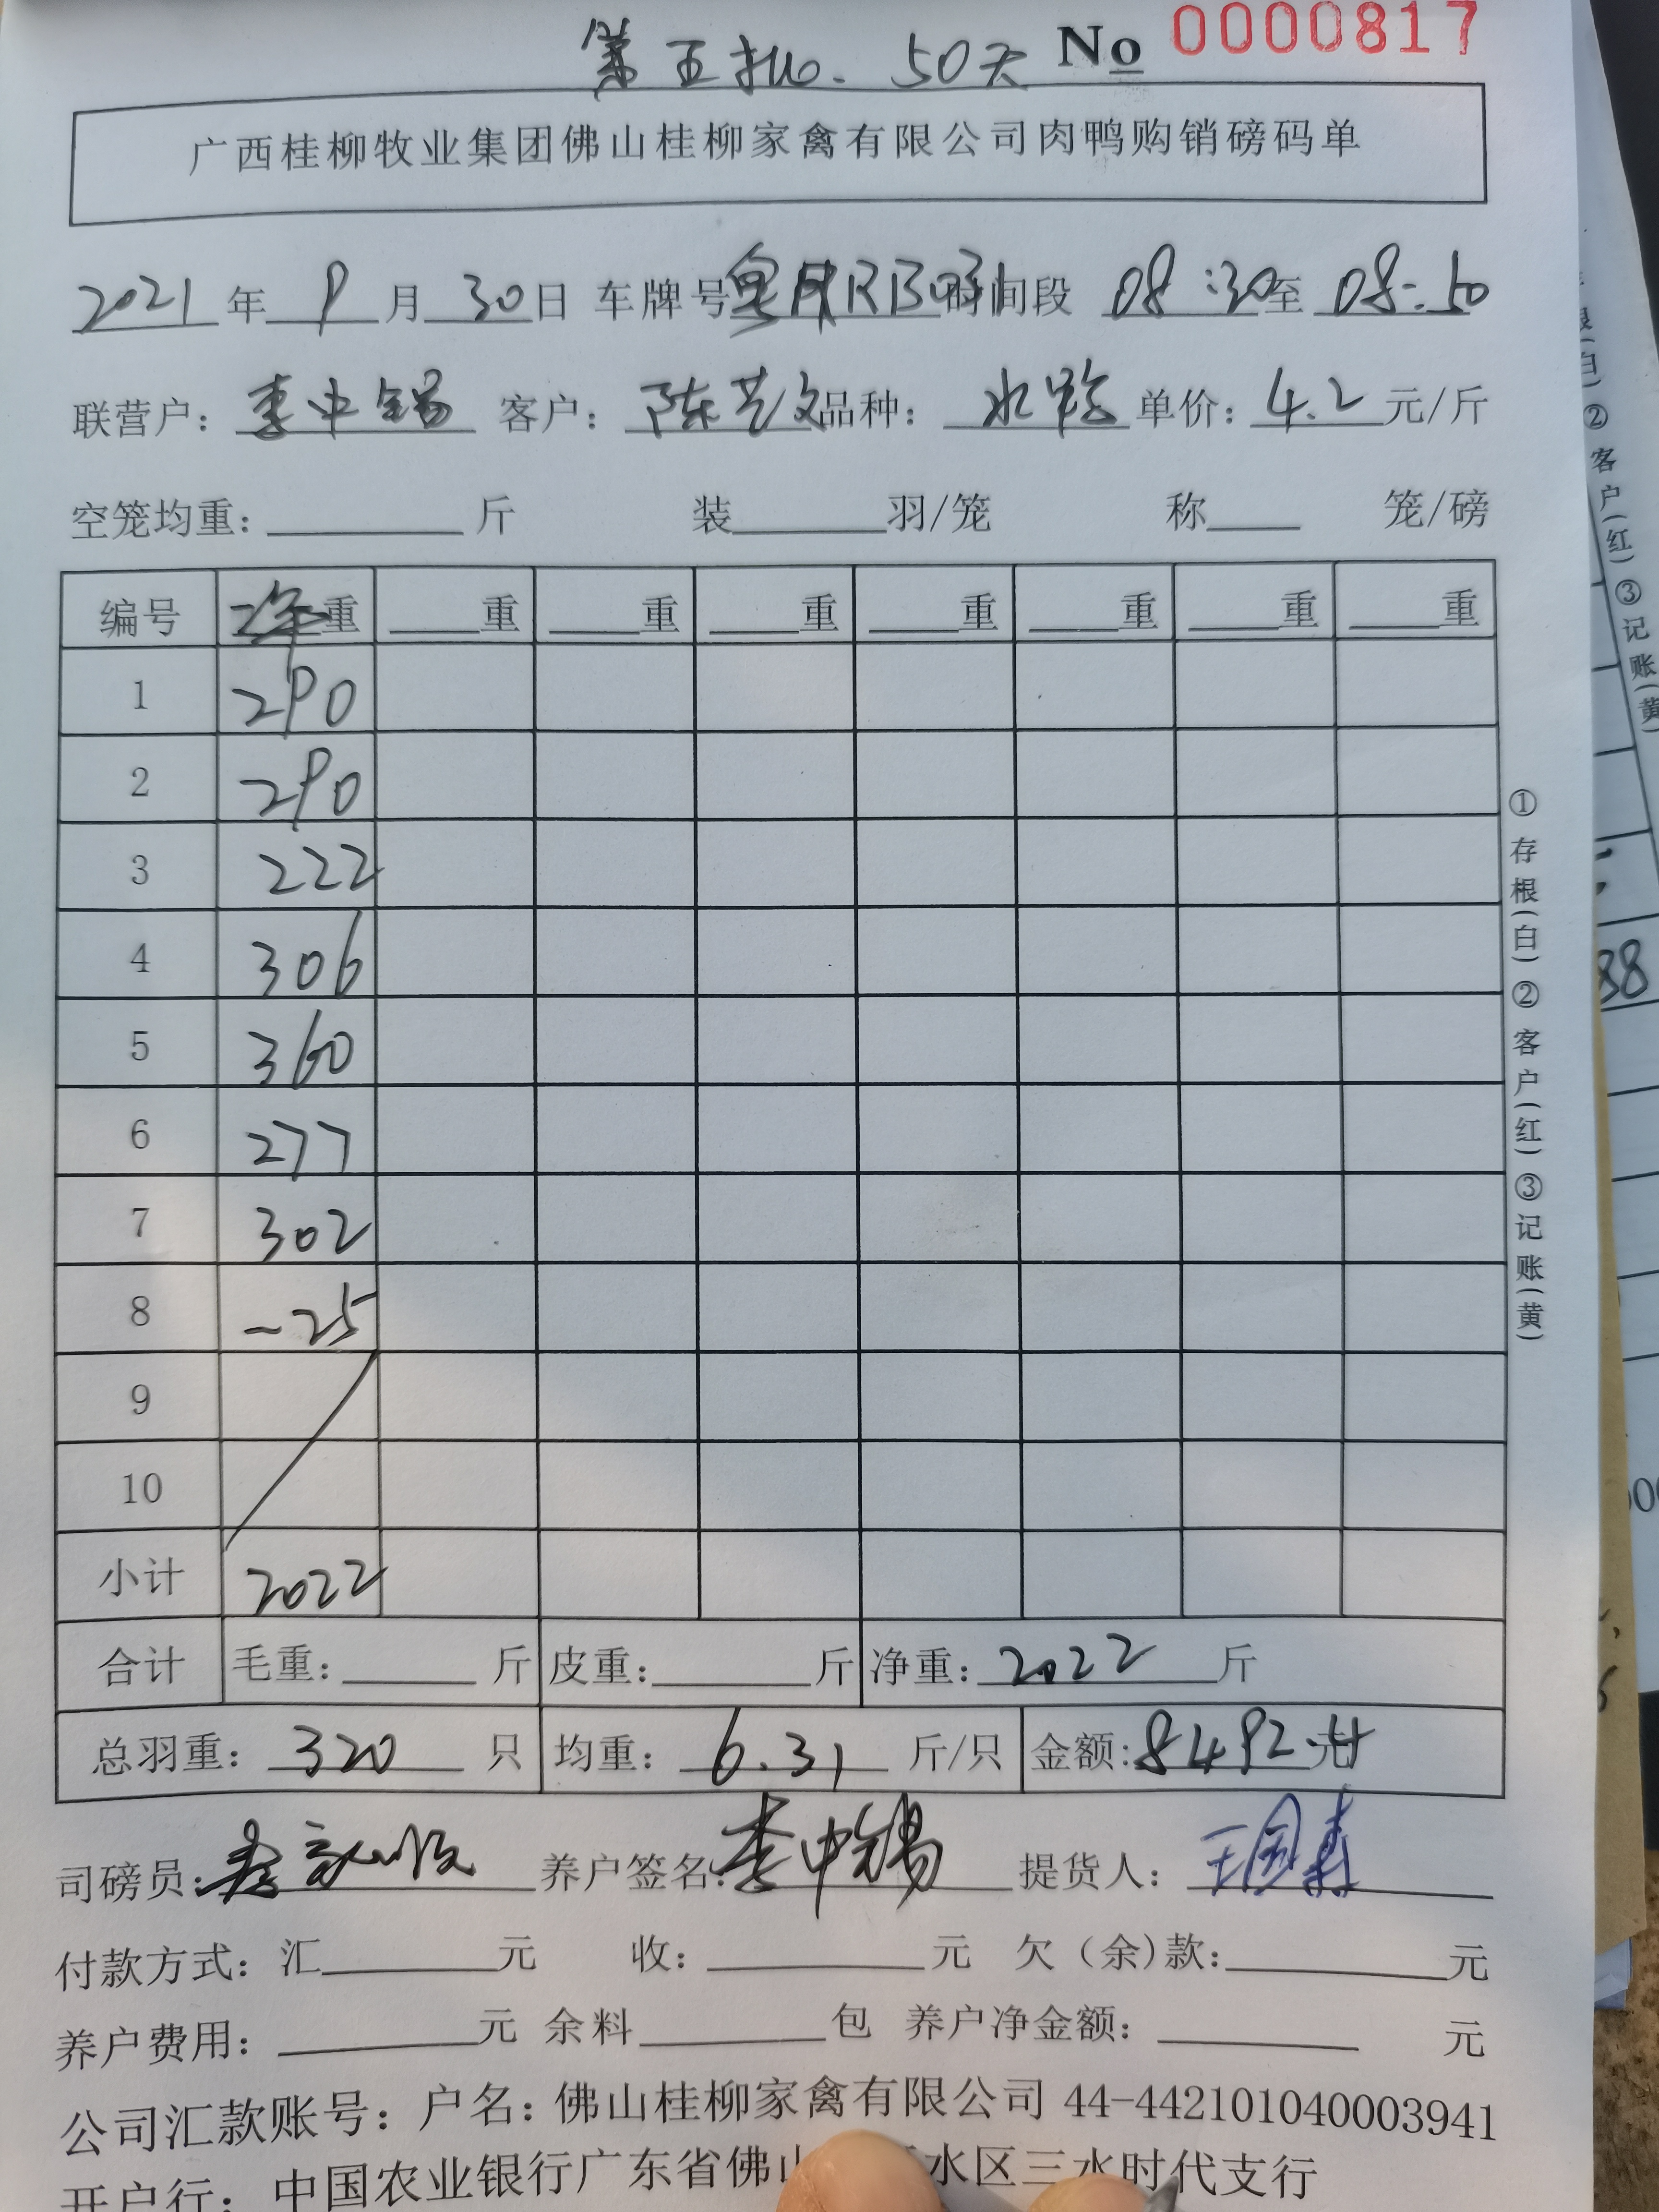 第五批. 50天 No 0000817
广西桂柳牧业集团佛山桂柳家禽有限公司肉鸭购销磅码单
2021年9月30日 车牌号 时间段 08:30至08:50
联营户：李中锡 客户：陈艺文 品种：水鸭 单价：4.2元/斤
空笼均重：____斤 装____羽/笼 称____笼/磅
编号 净重 ____重 ____重 ____重 ____重 ____重 ____重 ____重
1 290
2 290
3 222
4 306
5 360
6 277
7 302
8 -25
9
10
小计 2022
合计 毛重：____斤 皮重：____斤 净重：2022斤
总羽重：320只 均重：6.31斤/只 金额：8492.4元
司磅员： 养户签名：李中锡 提货人：
付款方式：汇____元 收：____元 欠（余）款：____元
养户费用：____元 余料____包 养户净金额：____元
公司汇款账号：户名：佛山桂柳家禽有限公司 44-442101040003941
开户行：中国农业银行广东省佛山 水区三水时代支行
①存根(白)②客户(红)③记账(黄)
②客户(红)③记账(黄)
88